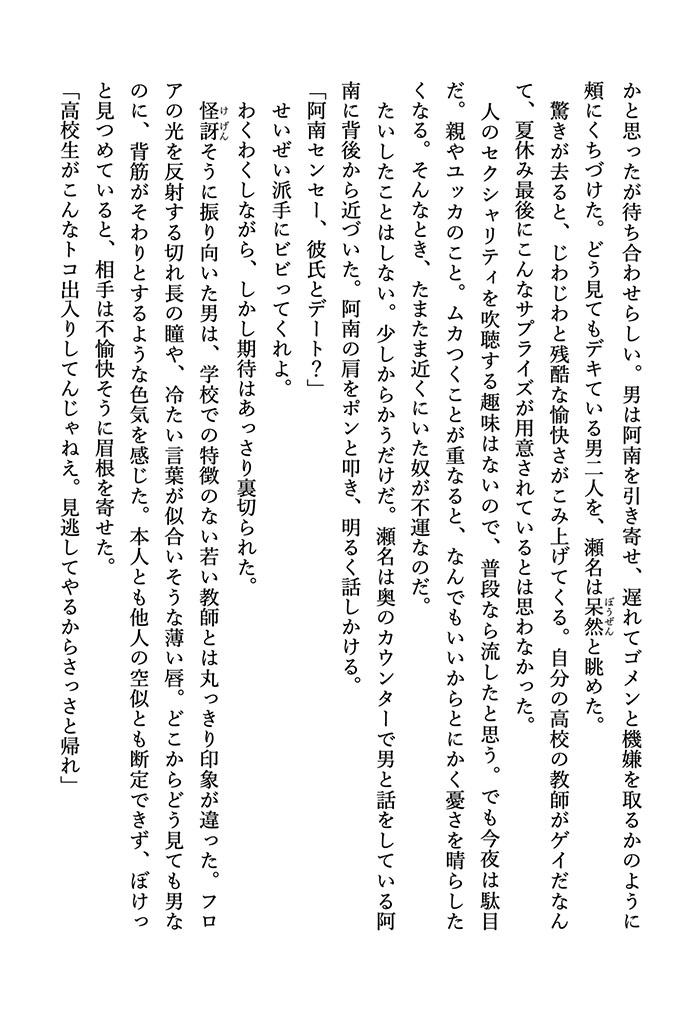 かと思ったが待ち合わせらしい。男は阿南を引き寄せ、遅れてゴメンと機嫌を取るかのように
頰にくちづけた。どう見てもデキている男二人を、瀬名は呆然と眺めた。
驚きが去ると、じわじわと残酷な愉快さがこみ上げてくる。自分の高校の教師がゲイだなん
て、夏休み最後にこんなサプライズが用意されているとは思わなかった。
人のセクシャリティを吹聴する趣味はないので、普段なら流したと思う。でも今夜は駄目
だ。親やユッカのこと。ムカつくことが重なると、なんでもいいからとにかく憂さを晴らした
くなる。そんなとき、たまたま近くにいた奴が不運なのだ。
たいしたことはしない。少しからかうだけだ。瀬名は奥のカウンターで男と話をしている阿
南に背後から近づいた。阿南の肩をポンと叩き、明るく話しかける。
「阿南センセー、彼氏とデート？」
せいぜい派手にビビってくれよ。
わくわくしながら、しかし期待はあっさり裏切られた。
怪訝そうに振り向いた男は、学校での特徴のない若い教師とは丸っきり印象が違った。フロ
アの光を反射する切れ長の瞳や、冷たい言葉が似合いそうな薄い唇。どこからどう見ても男な
のに、背筋がそわりとするような色気を感じた。本人とも他人の空似とも断定できず、ぼけっ
と見つめていると、相手は不愉快そうに眉根を寄せた。
「高校生がこんなトコ出入りしてんじゃねえ。見逃してやるからさっさと帰れ」